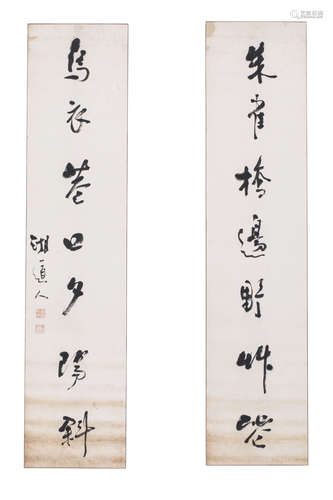 朱雀橋邊野艸花
烏衣巷口夕陽斜